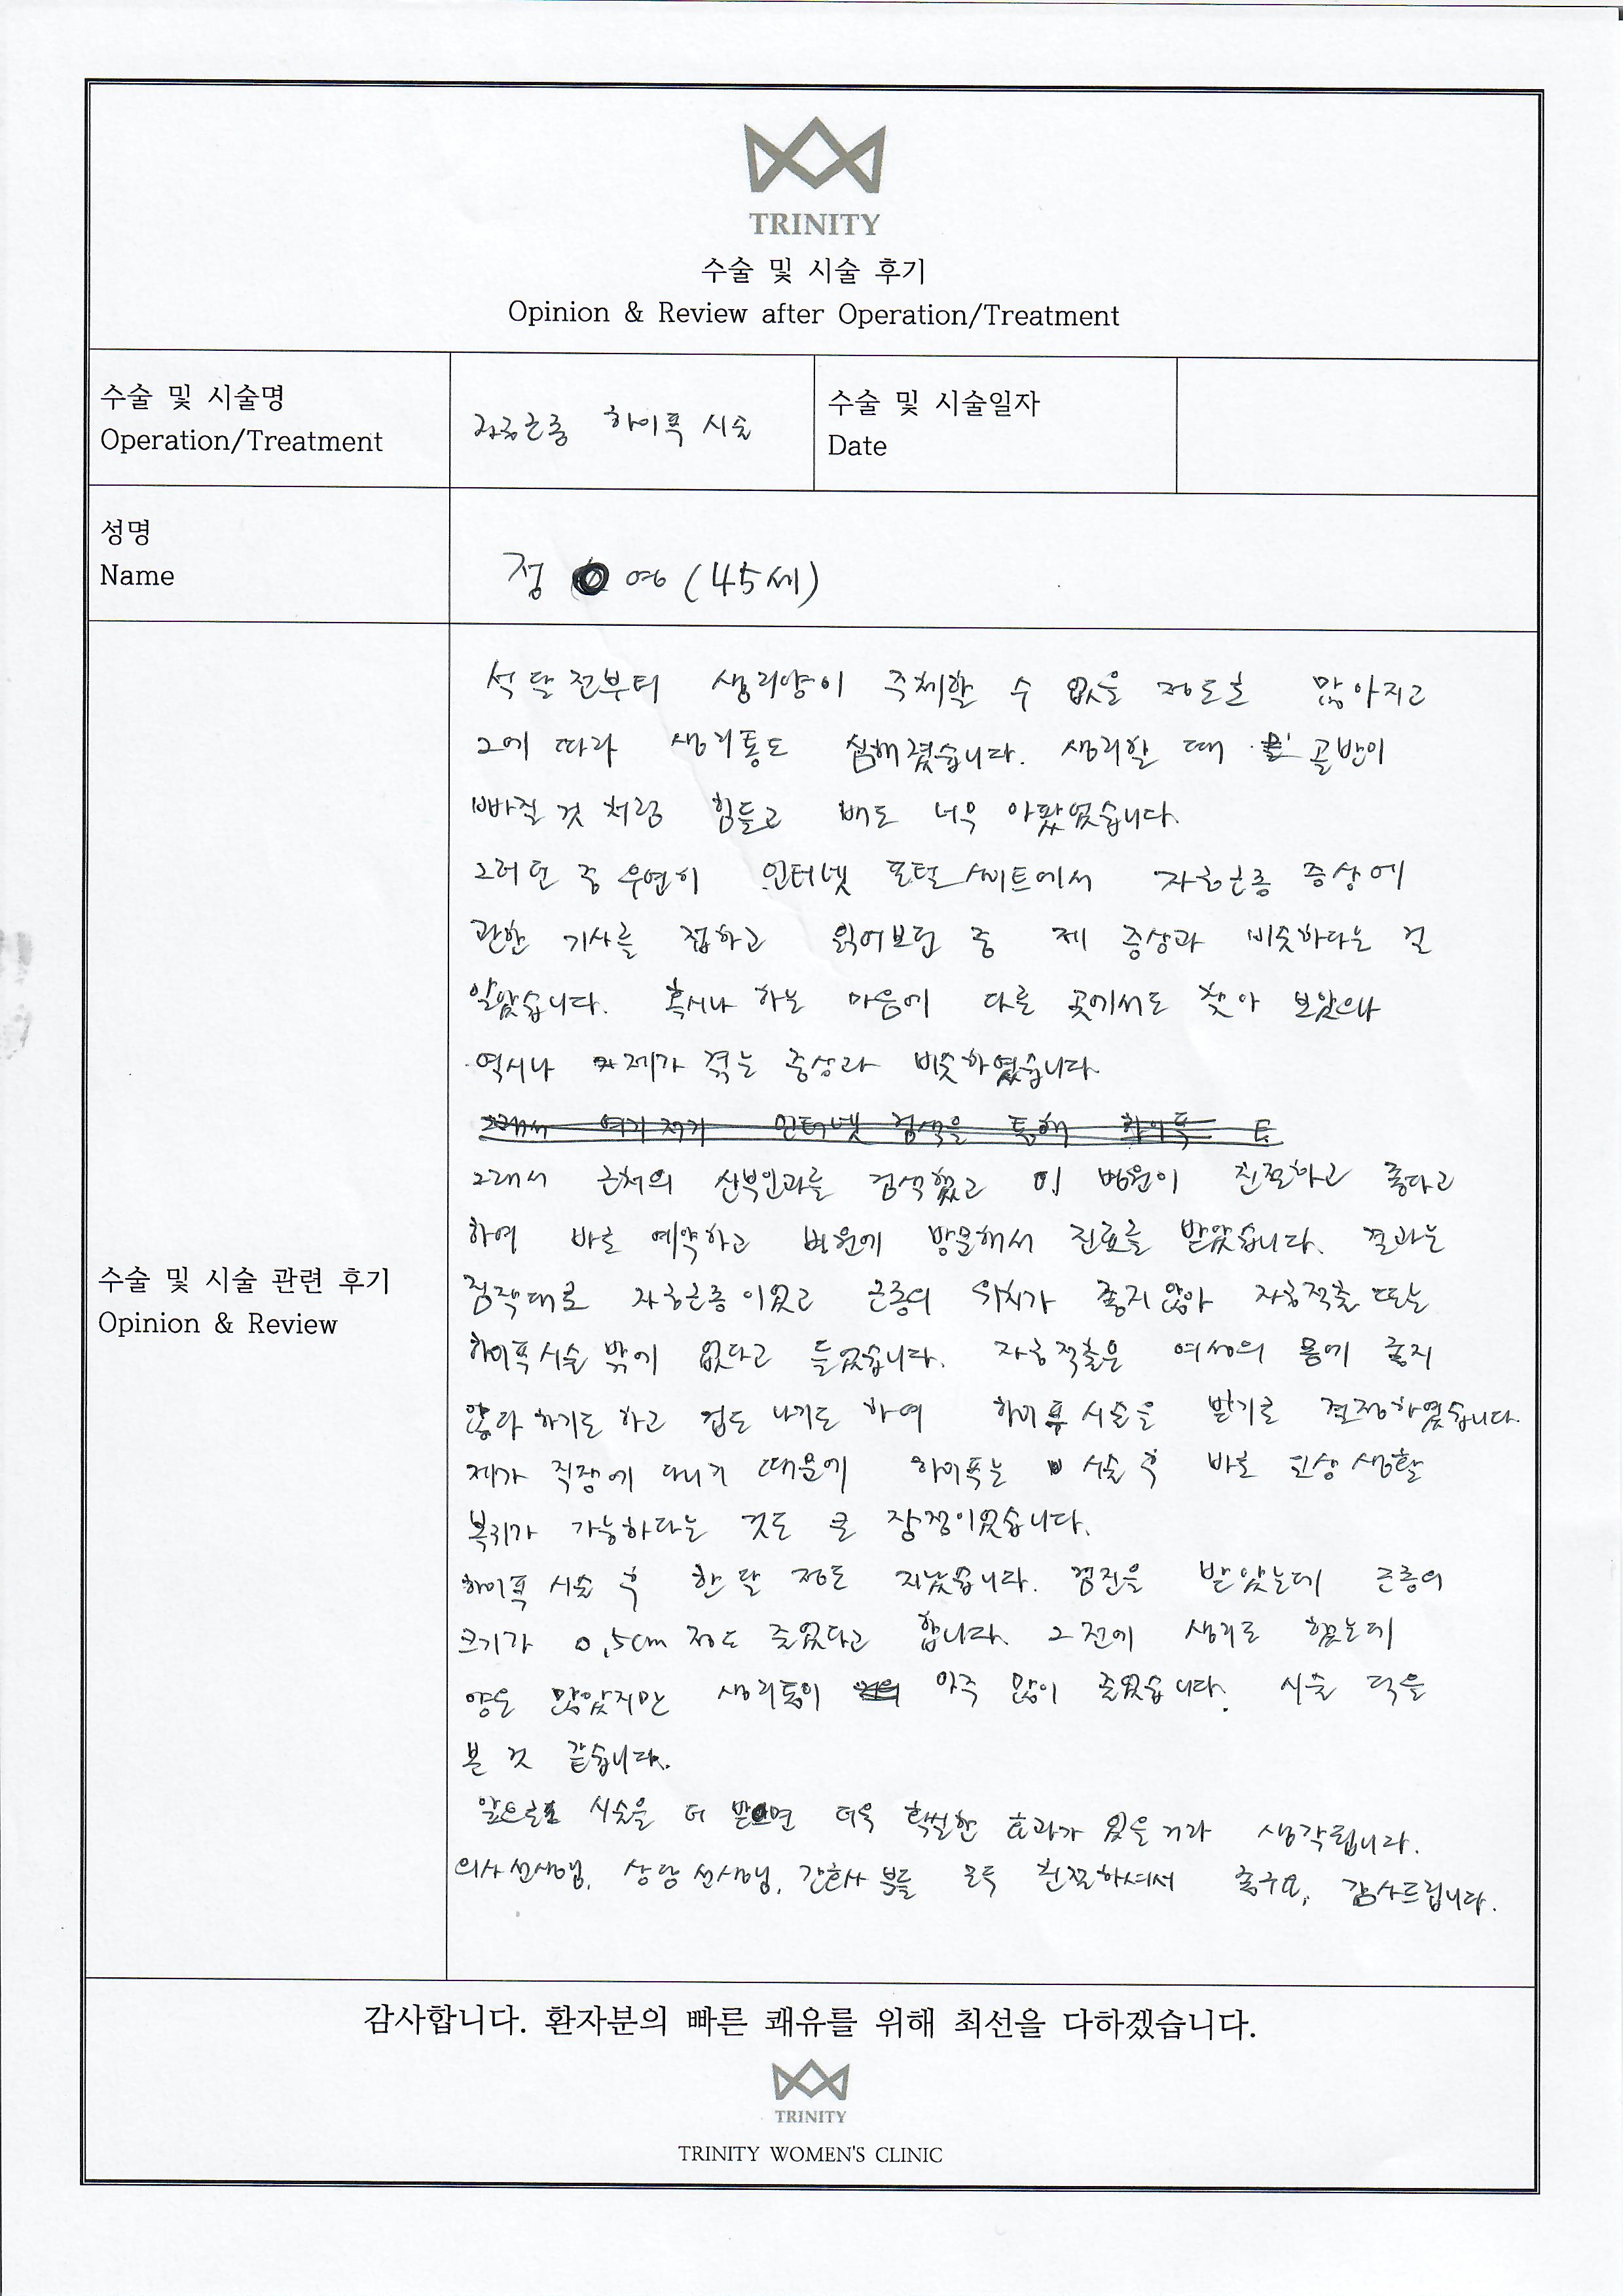 TRINITY
수술 및 시술 후기
Opinion & Review after Operation/Treatment
수술 및 시술명
Operation/Treatment
자궁근종 하이푸 시술
수술 및 시술일자
Date
성명
Name
정 영 (45세)
석달 전부터 생리양이 주체할 수 없을 정도로 많아지고
그에 따라 생리통도 심해졌습니다. 생리할 때 골반이
빠질 것 처럼 힘들고 배도 너무 아팠었습니다.
그러던 중 우연히 인터넷 포털 싸이트에서 자궁근종 증상에
관한 기사를 접하고 읽어보던 중 제 증상과 비슷하다는 걸
알았습니다. 혹시나 하는 마음에 다른 곳에서도 찾아 보았으나
역시나 제가 겪는 증상과 비슷하였습니다.
그래서 여기저기 인터넷 검색을 통해 하이푸
그래서 근처의 산부인과를 검색했고 이 병원이 친절하고 좋다고
하여 바로 예약하고 병원에 방문해서 진료를 받았습니다. 결과는
짐작대로 자궁근종이었고 근종의 위치가 좋지않아 자궁적출 또는
하이푸시술 밖에 없다고 들었습니다. 자궁적출은 여성의 몸에 좋지
않다 하기도 하고 겁도 나기도 하여 하이푸시술을 받기로 결정하였습니다.
제가 직장에 다니기 때문에 하이푸는 시술 후 바로 일상생활
복귀가 가능하다는 것도 큰 장점이었습니다.
하이푸 시술 후 한달 정도 지났습니다. 검진을 받았는데 근종의
크기가 0.5cm 정도 줄었다고 합니다. 그 전에 생리를 했는데
양은 많았지만 생리통이 아주 많이 줄었습니다. 시술 덕을
본 것 같습니다.
앞으로 시술을 더 받으면 더욱 확실한 효과가 있을거라 생각됩니다.
의사선생님, 상담선생님, 간호사 분들 모두 친절하셔서 좋구요, 감사드립니다.
수술 및 시술 관련 후기
Opinion & Review
감사합니다. 환자분의 빠른 쾌유를 위해 최선을 다하겠습니다.
TRINITY
TRINITY WOMEN'S CLINIC